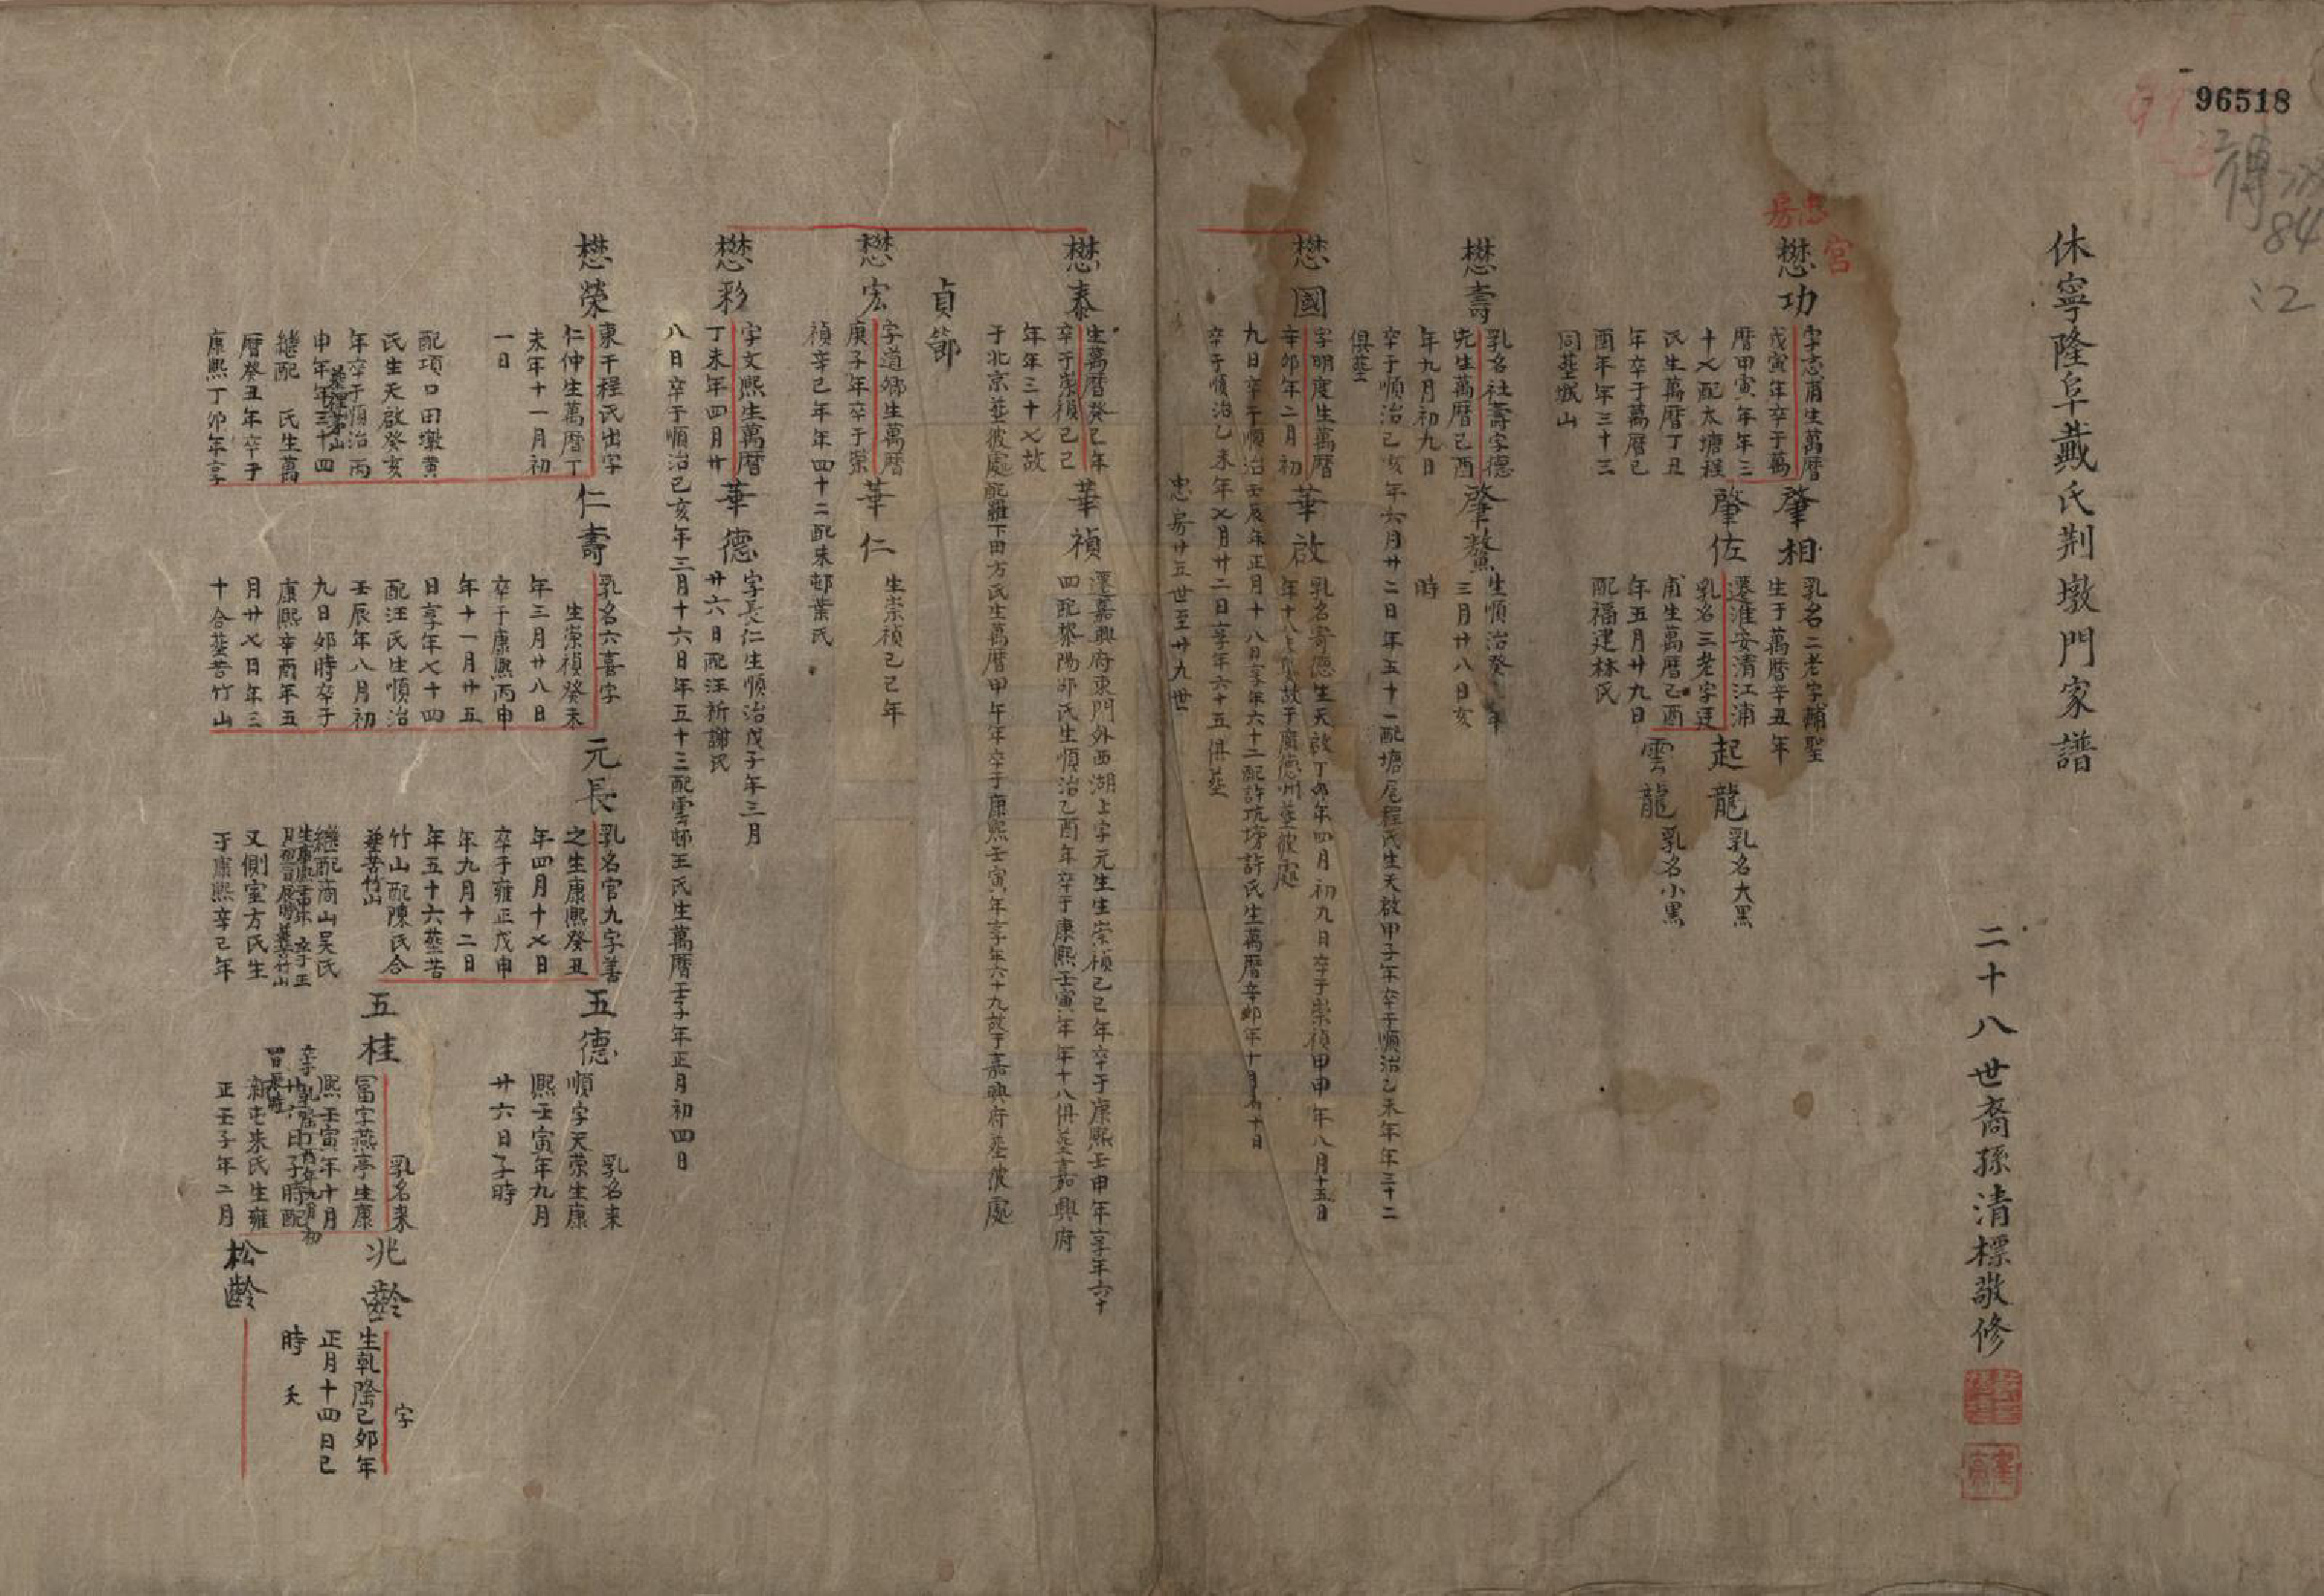 96518
休寧隆阜戴氏荆墩門家譜
二十八世裔孫清標敬修
忠房
宮
懋功
字忠甫生萬曆
戊寅年卒于萬
曆甲寅年年三
十七配太塘程
氏生萬曆丁丑
年卒于萬曆己
酉年年三十三
同塟城山
肇相
乳名二老字輔聖
生于萬曆辛丑年
遷淮安清江浦
肇佐
乳名三老字廷
甫生萬曆乙酉
年五月廿九日
配福建林氏
起龍
乳名大黑
雲龍
乳名小黑
懋壽
乳名社壽字德
先生萬曆己酉
年九月初九日
卒于順治己亥年六月廿二日年五十一配塘尾程氏生天啟甲子年卒于順治乙未年年三十二
俱塟
肇鰲
生順治癸 年
三月廿八日亥
時
懋國
字明度生萬曆
辛卯年二月初
九日卒于順治壬辰年正月十八日享年六十二配許坑塝許氏生萬曆辛卯年十月 十日
卒于順治乙未年七月廿二日享年六十五俱塟
華啟
乳名寄德生天啟丁卯年四月初九日卒于崇禎甲申年八月十五日
年十八 故于廣德州塟彼處
忠房廿五世至廿九世
懋泰
生萬曆癸巳年
卒于崇禎己巳
年年三十七故
于北京塟彼處配羅下田方氏生萬曆甲午年卒于康熙壬寅年享年六十九故于嘉興府塟彼處
華禎
遷嘉興府東門外西湖上字元生生崇禎己巳年卒于康熙壬申年享年六十
四配黎陽邵氏生順治乙酉年卒于康熙壬寅年年十八俱塟嘉興府
貞節
懋宏
字道鄉生萬曆
庚子年卒于崇
禎辛巳年年四十二配朱郵葉氏
華仁
生崇禎己巳年
懋彩
字文熙生萬曆
丁未年四月廿
八日卒于順治己亥年三月十六日年五十三配雲郵王氏生萬曆壬子年正月初四日
華德
字長仁生順治戊子年三月
廿六日配汪祈謝氏
懋榮
東干程氏出字
仁仲生萬曆丁
未年十一月初
一日
配項口田墩黃
氏生天啟癸亥
年卒于順治丙
申年年三十四
繼配 氏生萬
曆癸丑年卒于
康熙丁卯年享
仁壽
乳名六喜字
生崇禎癸未
年三月廿八日
卒于康熙丙申
年十一月廿五
日享年七十四
配汪氏生順治
壬辰年八月初
九日卯時卒于
康熙辛酉年五
月廿七日年三
十合塟苦竹山
元長
乳名官九字善
之生康熙癸丑
年四月十七日
卒于雍正戊申
年九月十二日
年五十六塟苦
竹山配陳氏合
塟苦竹山
繼配商山吴氏
又側室方氏生
于康熙辛巳年
五德
乳名来
順字天榮生康
熙壬寅年九月
廿六日子時
五桂
乳名来
富字燕亭生康
熙壬寅年十月
廿六日子時配
新屯朱氏生雍
正壬子年二月
兆齡
字
生乾隆己卯年
正月十四日巳
時 夭
松齡